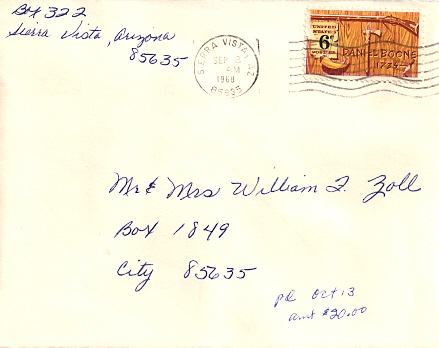 Box 322
Sierra Vista, Arizona
85635
SIERRA VISTA, AZ
SEP
AM
1968
85635
UNITED
STATES
6¢
POSTAGE
DANIEL BOONE
1734
Mr & Mrs William F. Zoll
Box 1849
City 85635
pd Oct 13
amt $20.00